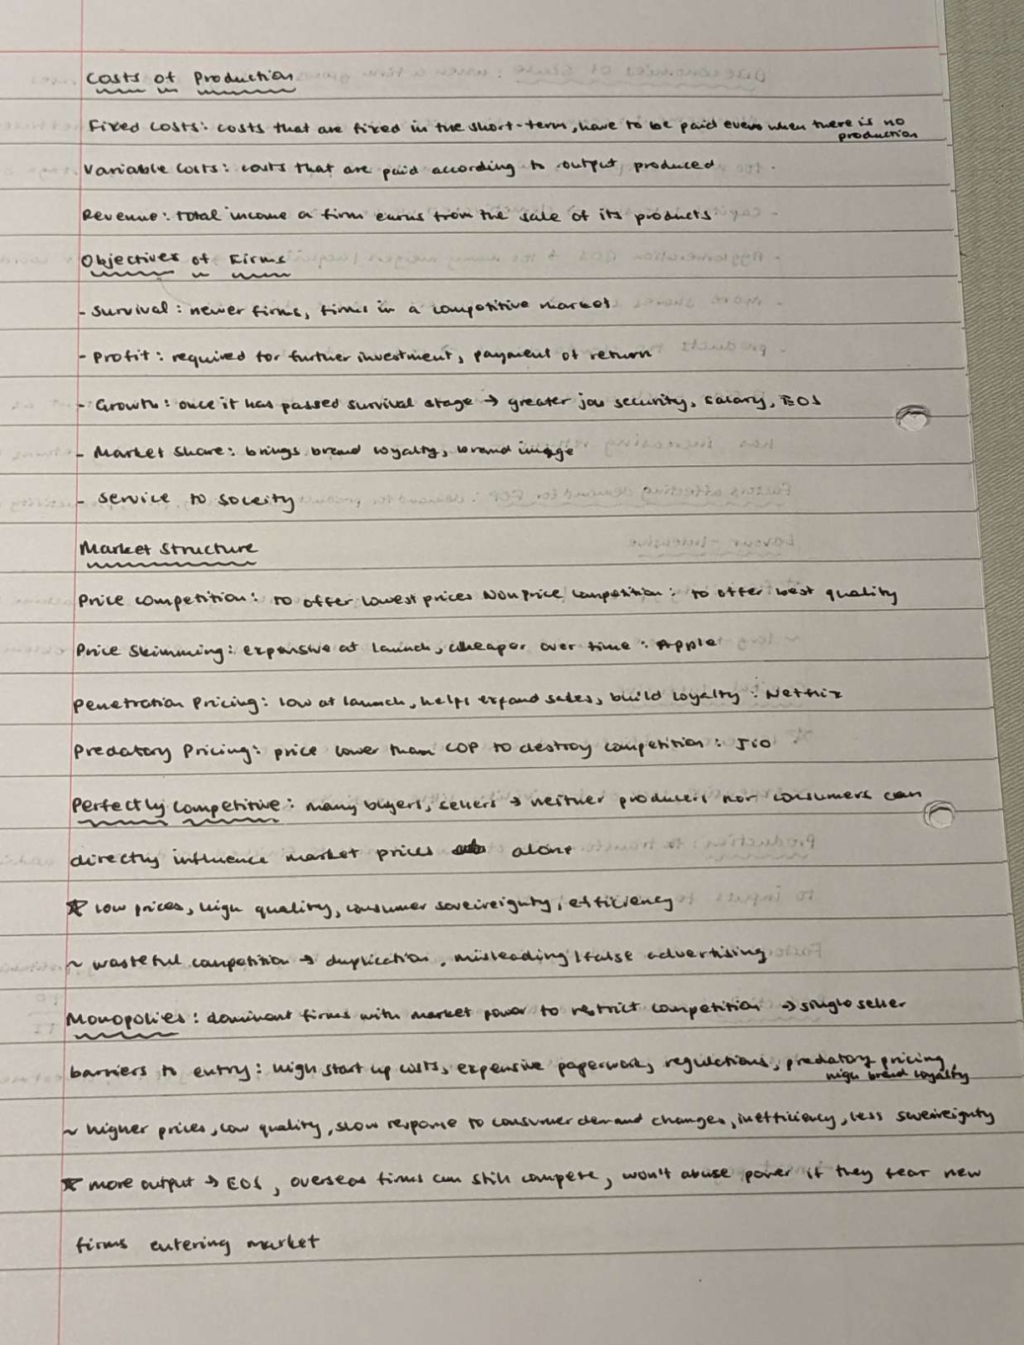 Costs of Production
Fixed Costs: costs that are fixed in the short-term, have to be paid even when there is no production
Variable Costs: costs that are paid according to output produced
Revenue: total income a firm earns from the sale of its products
Objectives of Firms
- Survival: newer firms, firms in a competitive market
- Profit: required for further investment, payment of return
- Growth: once it has passed survival stage → greater job security, salary, EOS
- Market Share: brings brand loyalty, brand image
- Service to soceity
Market Structure
Price competition: to offer lowest prices Non price competition: to offer best quality
Price Skimming: expensive at launch, cheaper over time: Apple
Penetration Pricing: low at launch, helps expand sales, build loyalty: Netflix
Predatory Pricing: price lower than COP to destroy competition: Jio
Perfectly Competitive: many buyers, sellers → neither producers nor consumers can
directly influence market prices alone
☆ low prices, high quality, consumer sovereignty, efficiency
~ wasteful competition → duplication, misleading/false advertising
Monopolies: dominant firms with market power to restrict competition → single seller
barriers to entry: high start up costs, expensive paperwork, regulations, predatory pricing, high brand loyalty
~ higher prices, low quality, slow response to consumer demand changes, inefficiency, less sovereignty
☆ more output → EOS, overseas firms can still compete, won't abuse power if they fear new
firms entering market